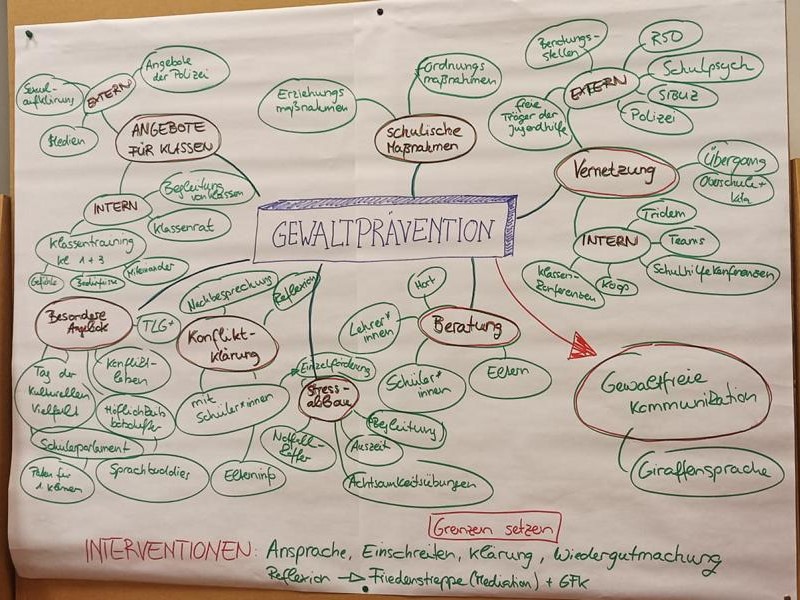 GEWALTPRÄVENTION
ANGEBOTE
FÜR KLASSEN
EXTERN
Angebote
der Polizei
Sexual-
aufklärung
Medien
INTERN
Begleitung
von Klassen
Klassenrat
Klassentraining
Kl 1+3
Gefühle
Bedürfnisse
Miteinander
schulische
Maßnahmen
Erziehungs
maßnahmen
Ordnungs
maßnahmen
Vernetzung
EXTERN
Beratungs-
stellen
RSD
Schulpsych
SIBUZ
Polizei
freie
Träger der
Jugendhilfe
Übergang
Oberschule +
Kita
INTERN
Tridem
Teams
Schulhilfekonferenzen
Klassen-
konferenzen
Koop
Besondere
Angebote
TLG+
Tag der
kulturellen
Vielfalt
Konflikt-
lotsen
Höflichkeits
botschafter
Schülerparlament
Paten für
1. Klassen
Sprachbuddies
Konflikt-
klärung
Nachbesprechung
Reflexion
mit
Schüler*innen
Elterninfo
Stress-
abbau
Einzelförderung
(Begleitung)
Auszeit
Notfall-
koffer
Achtsamkeitsübungen
Beratung
Hort
Lehrer*
innen
Schüler*
innen
Eltern
Gewaltfreie
Kommunikation
Giraffensprache
Grenzen setzen
INTERVENTIONEN: Ansprache, Einschreiten, Klärung, Wiedergutmachung
Reflexion → Friedenstreppe (Mediation) + GFK